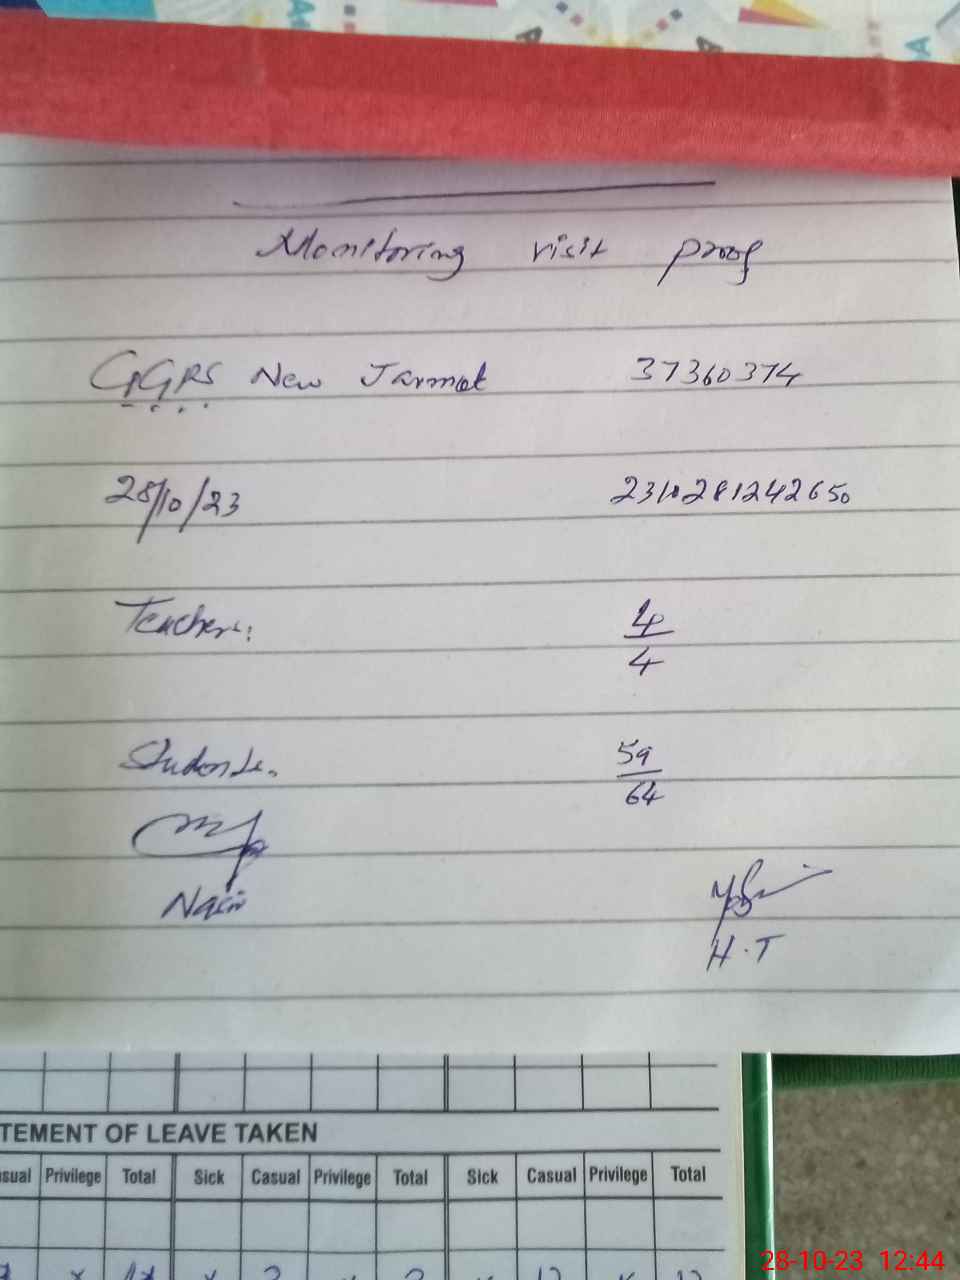 Monitoring visit proof
GGPS New Jarmot 37360374
28/10/23 2310281242650
Teachers: 4/4
Students. 59/64
Nasir
H.T
TEMENT OF LEAVE TAKEN
sual Privilege Total Sick Casual Privilege Total Sick Casual Privilege Total
28-10-23 12:44